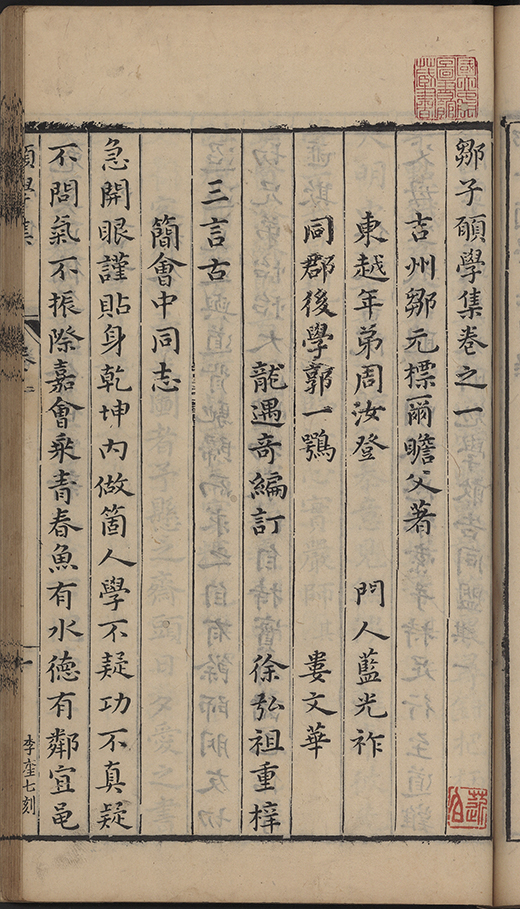 鄒子願學集卷之一
吉州鄒元標爾瞻父著
東越年弟周汝登 門人藍光祚
同郡後學郭一鶚 婁文華
龍遇奇編訂 徐弘祖重梓
三言古
簡會中同志
急開眼謹貼身乾坤內做箇人學不疑功不真疑
不問氣不振際嘉會乘青春魚有水德有鄰宜黽
願學集 卷之一 一
李
七刻